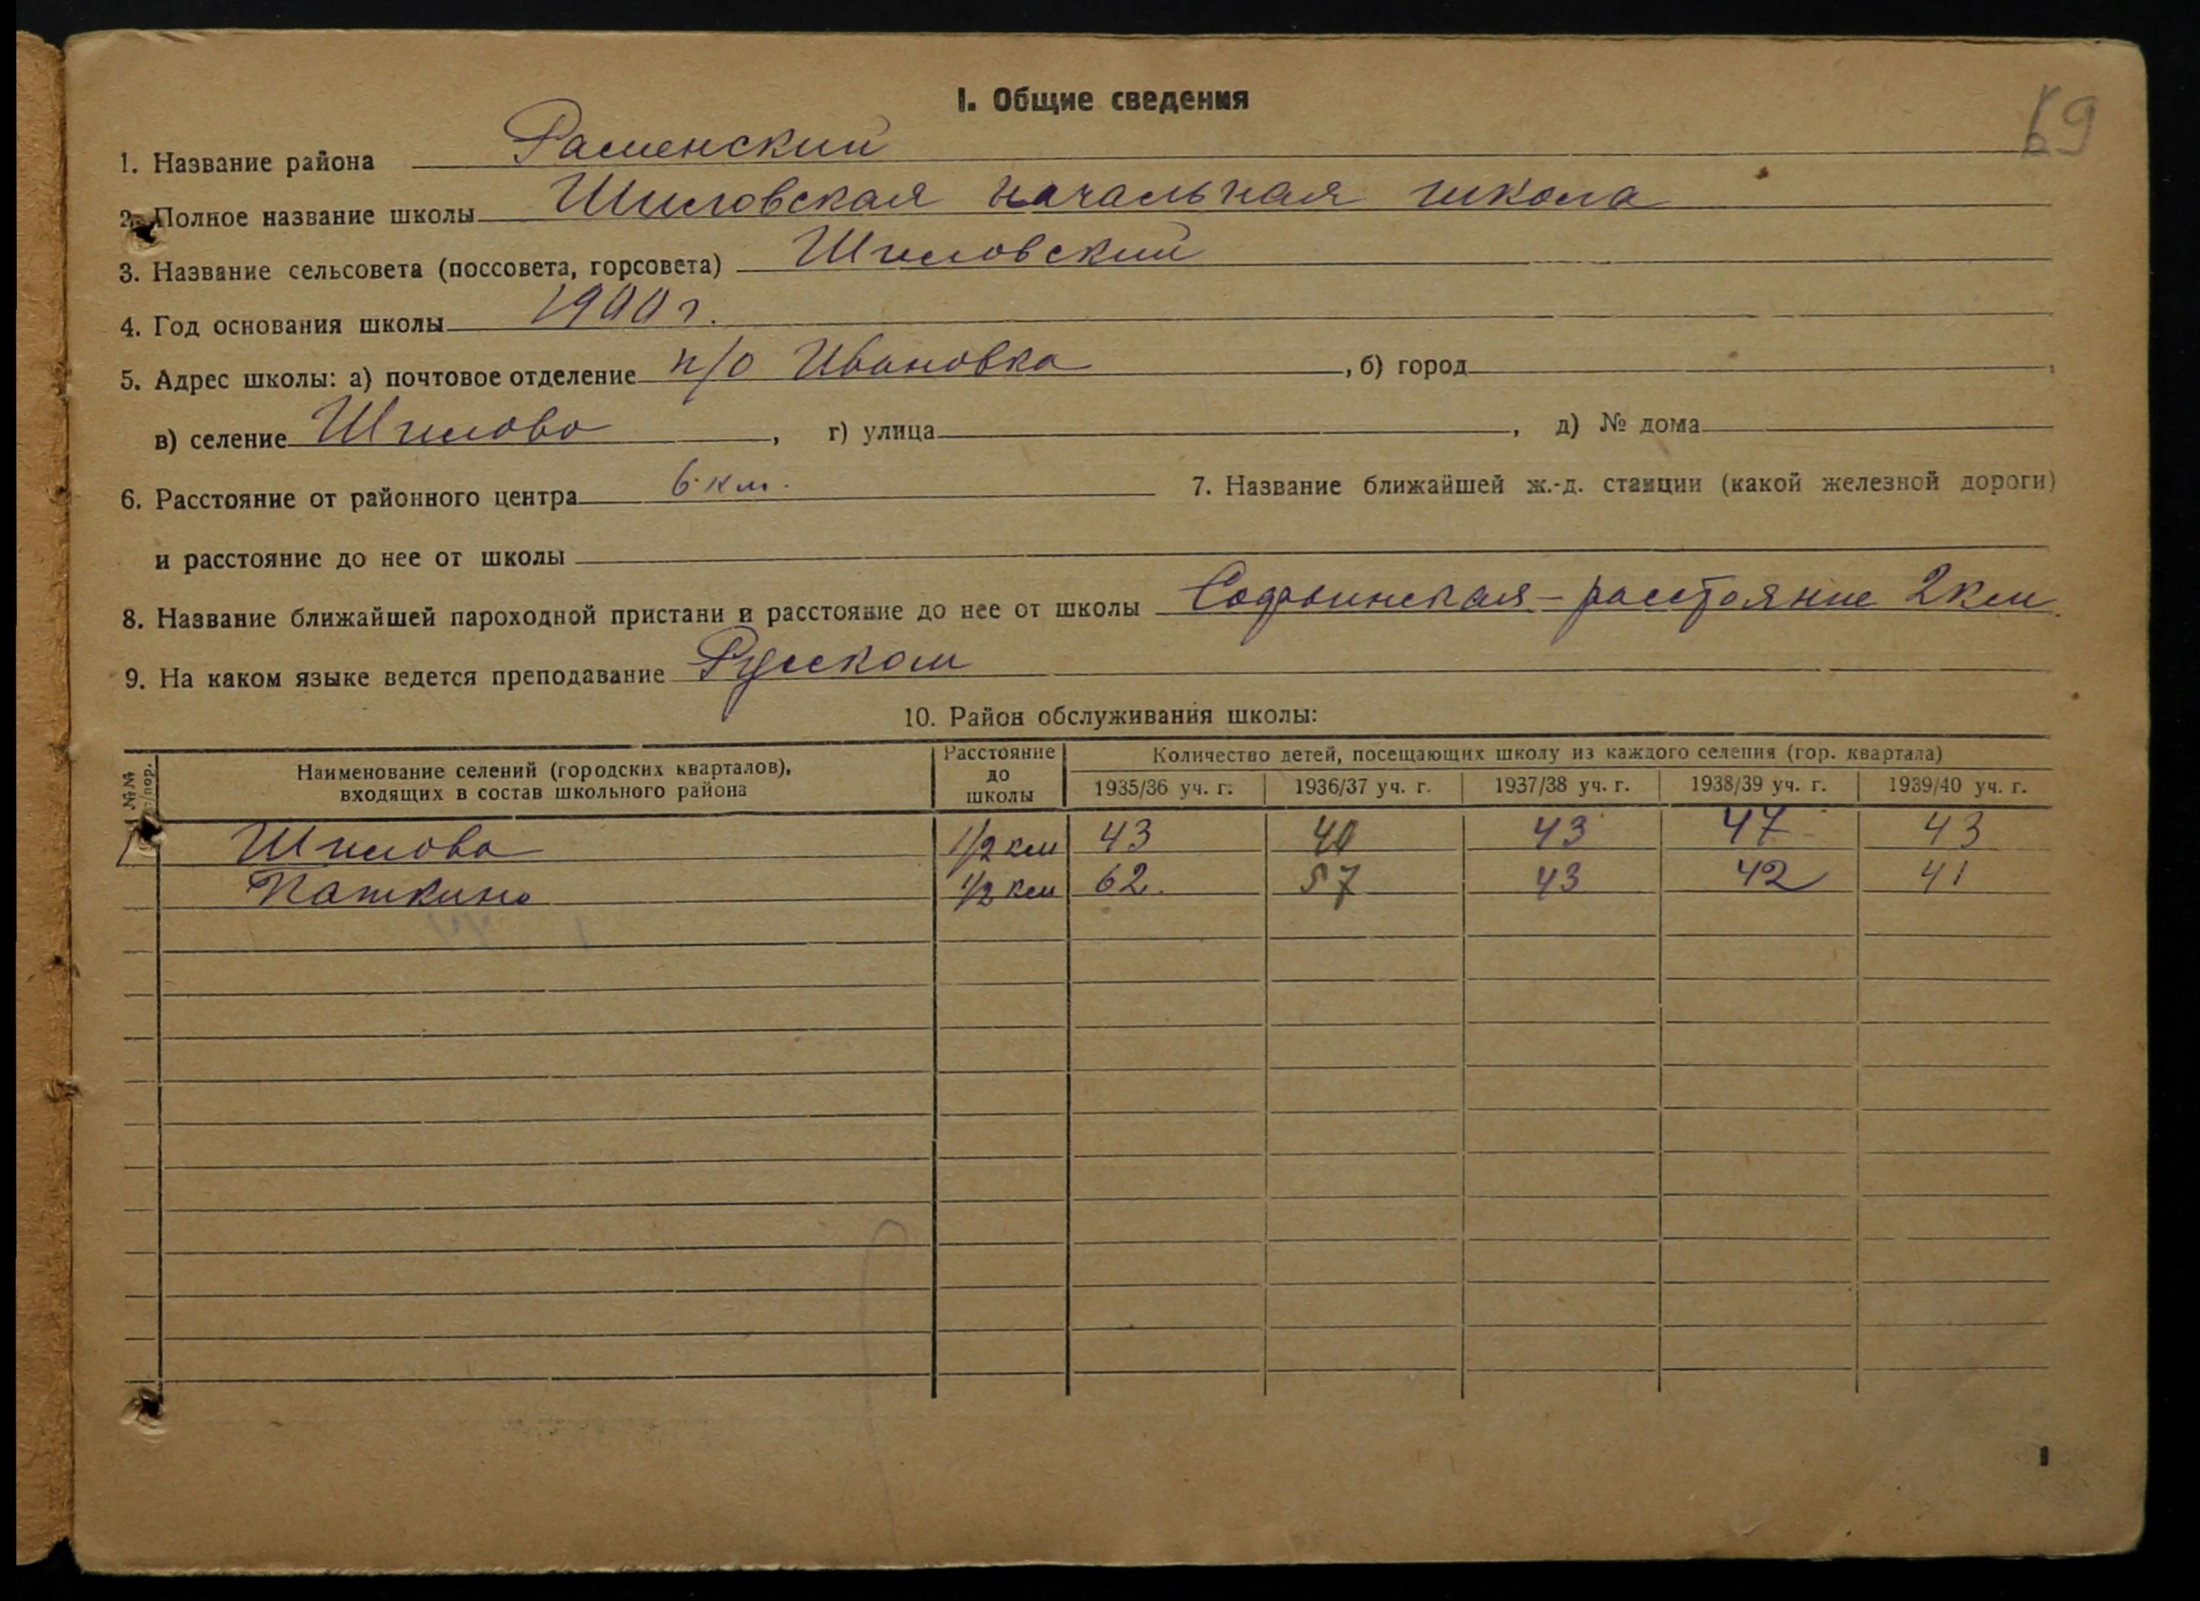 69
I. Общие сведения
1. Название района Раменский
2. Полное название школы Шиловская начальная школа
3. Название сельсовета (поссовета, горсовета) Шиловский
4. Год основания школы 1900 г.
5. Адрес школы: а) почтовое отделение п/о Ивановка, б) город
в) селение Шилово, г) улица, д) № дома
6. Расстояние от районного центра 6 км. 7. Название ближайшей ж.-д. станции (какой железной дороги)
и расстояние до нее от школы
8. Название ближайшей пароходной пристани и расстояние до нее от школы Софьинская – расстояние 2 км.
9. На каком языке ведется преподавание Русском
10. Район обслуживания школы:
№№ п/пор. Наименование селений (городских кварталов), входящих в состав школьного района Расстояние до школы Количество детей, посещающих школу из каждого селения (гор. квартала)
1935/36 уч. г. 1936/37 уч. г. 1937/38 уч. г. 1938/39 уч. г. 1939/40 уч. г.
1 Шилово 1/2 км 43 40 43 47 43
Паткино 1/2 км 62 57 43 42 41